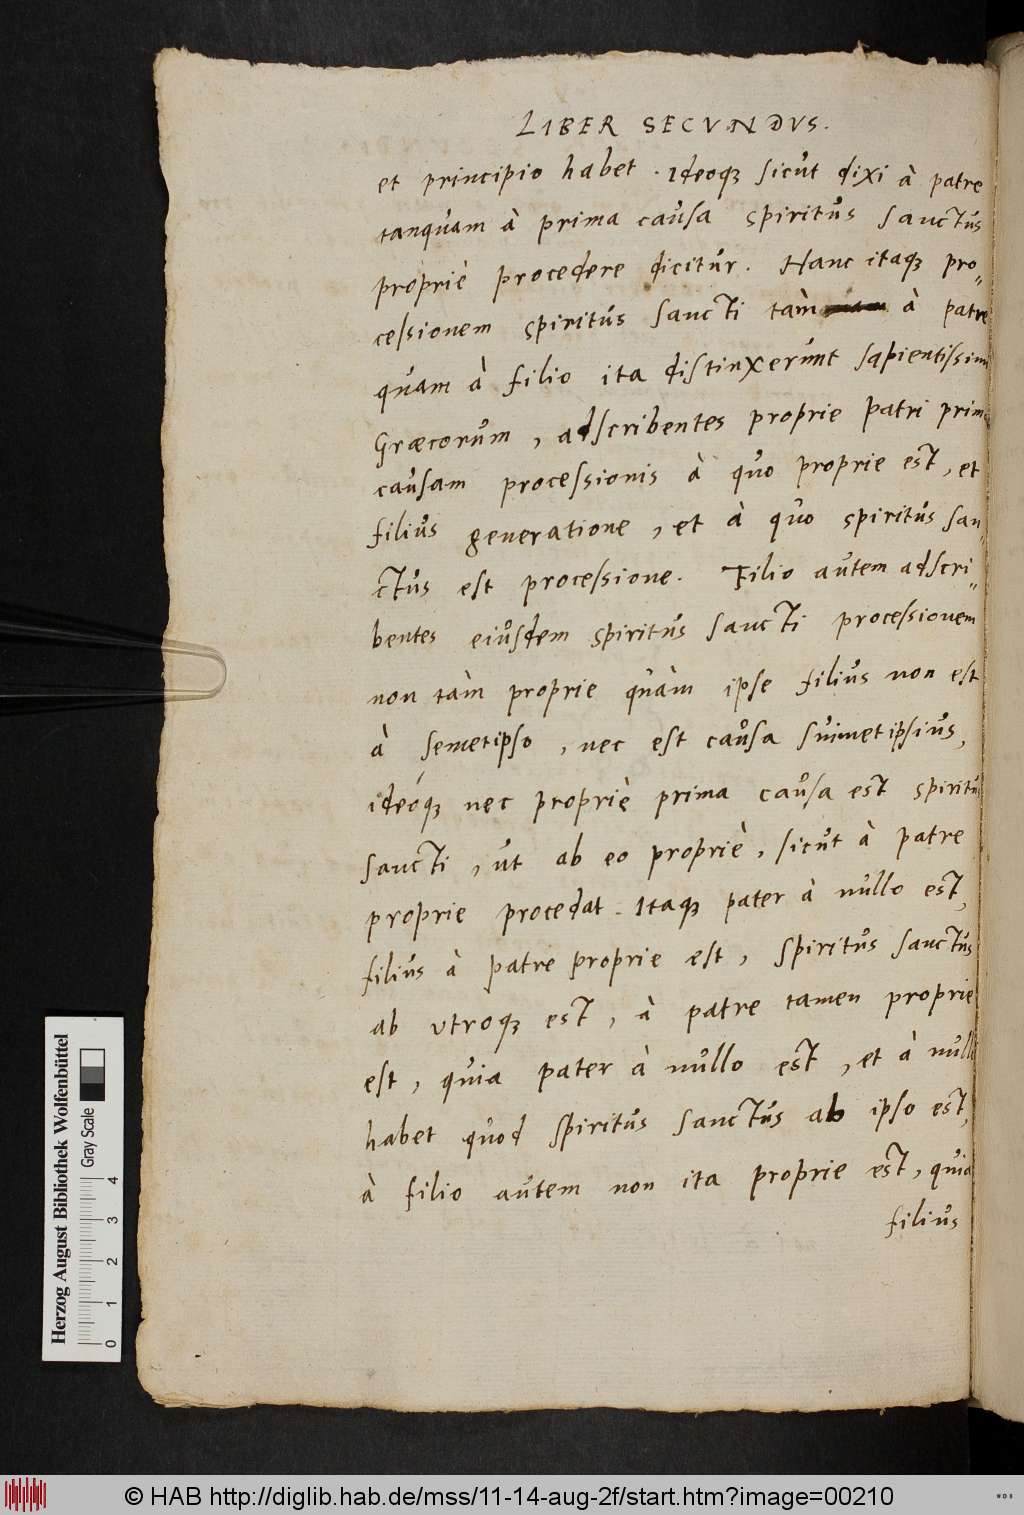 LIBER SECVNDVS.
et principio habet. Ideoq; sicut dixi à patre
tanquam à prima causa spiritus sanctus
propriè procedere dicitur. Hanc itaq; pro-
cessionem spiritus sancti tàm à patre
quam à filio ita distinxerunt sapientissim
Græcorum, adscribentes proprie patri prim
causam processionis à quo proprie est, et
filius generatione, et à quo spiritus san-
ctus est processione. Filio autem adscri-
bentes eiusdem spiritus sancti processionem
non tàm proprie quàm ipse filius non est
à semetipso, nec est causa suimetipsius,
ideóq; nec propriè prima causa est spiritus
sancti, ut ab eo propriè, sicut à patre
proprie procedat. Itaq; pater à nullo est,
filius à patre proprie est, spiritus sanctus
ab vtroq; est, à patre tamen proprie
est, quia pater à nullo est, et à null
habet quod spiritus sanctus ab ipso est,
à filio autem non ita proprie est, quia
filius
Herzog August Bibliothek Wolfenbüttel
Gray Scale
0 1 2 3 4
© HAB http://diglib.hab.de/mss/11-14-aug-2f/start.htm?image=00210